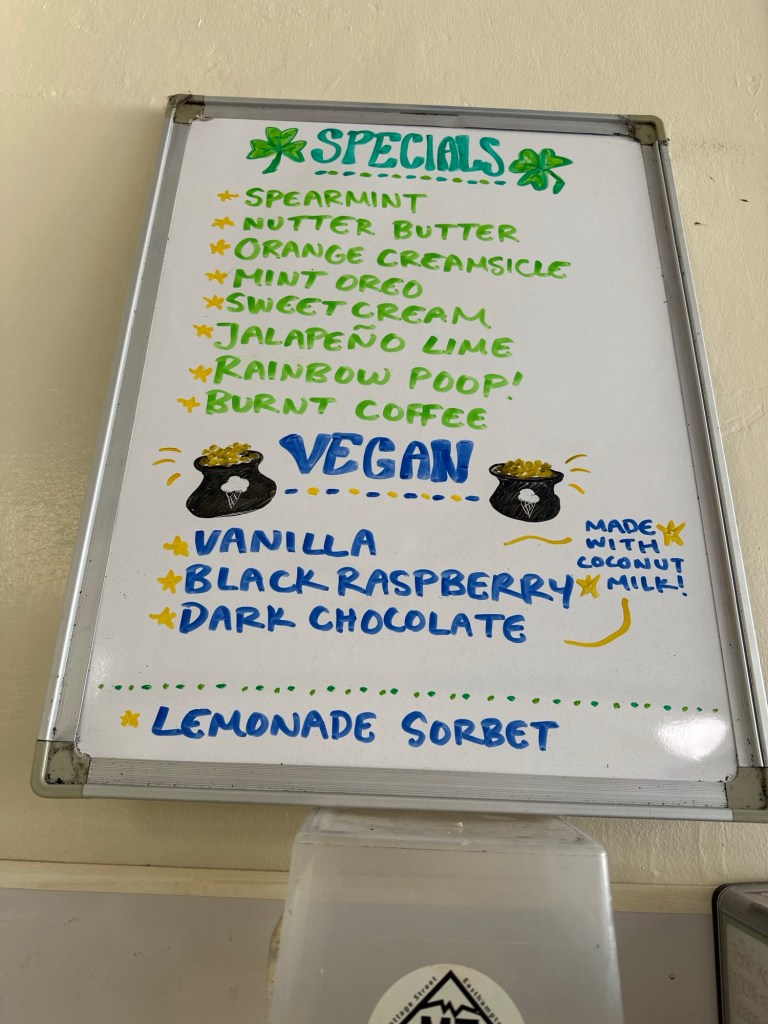 SPECIALS
SPEARMINT
NUTTER BUTTER
ORANGE CREAMSICLE
MINT OREO
SWEET CREAM
JALAPEÑO LIME
RAINBOW POOP!
BURNT COFFEE
VEGAN
VANILLA
BLACK RASPBERRY
DARK CHOCOLATE
MADE
WITH
COCONUT
MILK!
LEMONADE SORBET